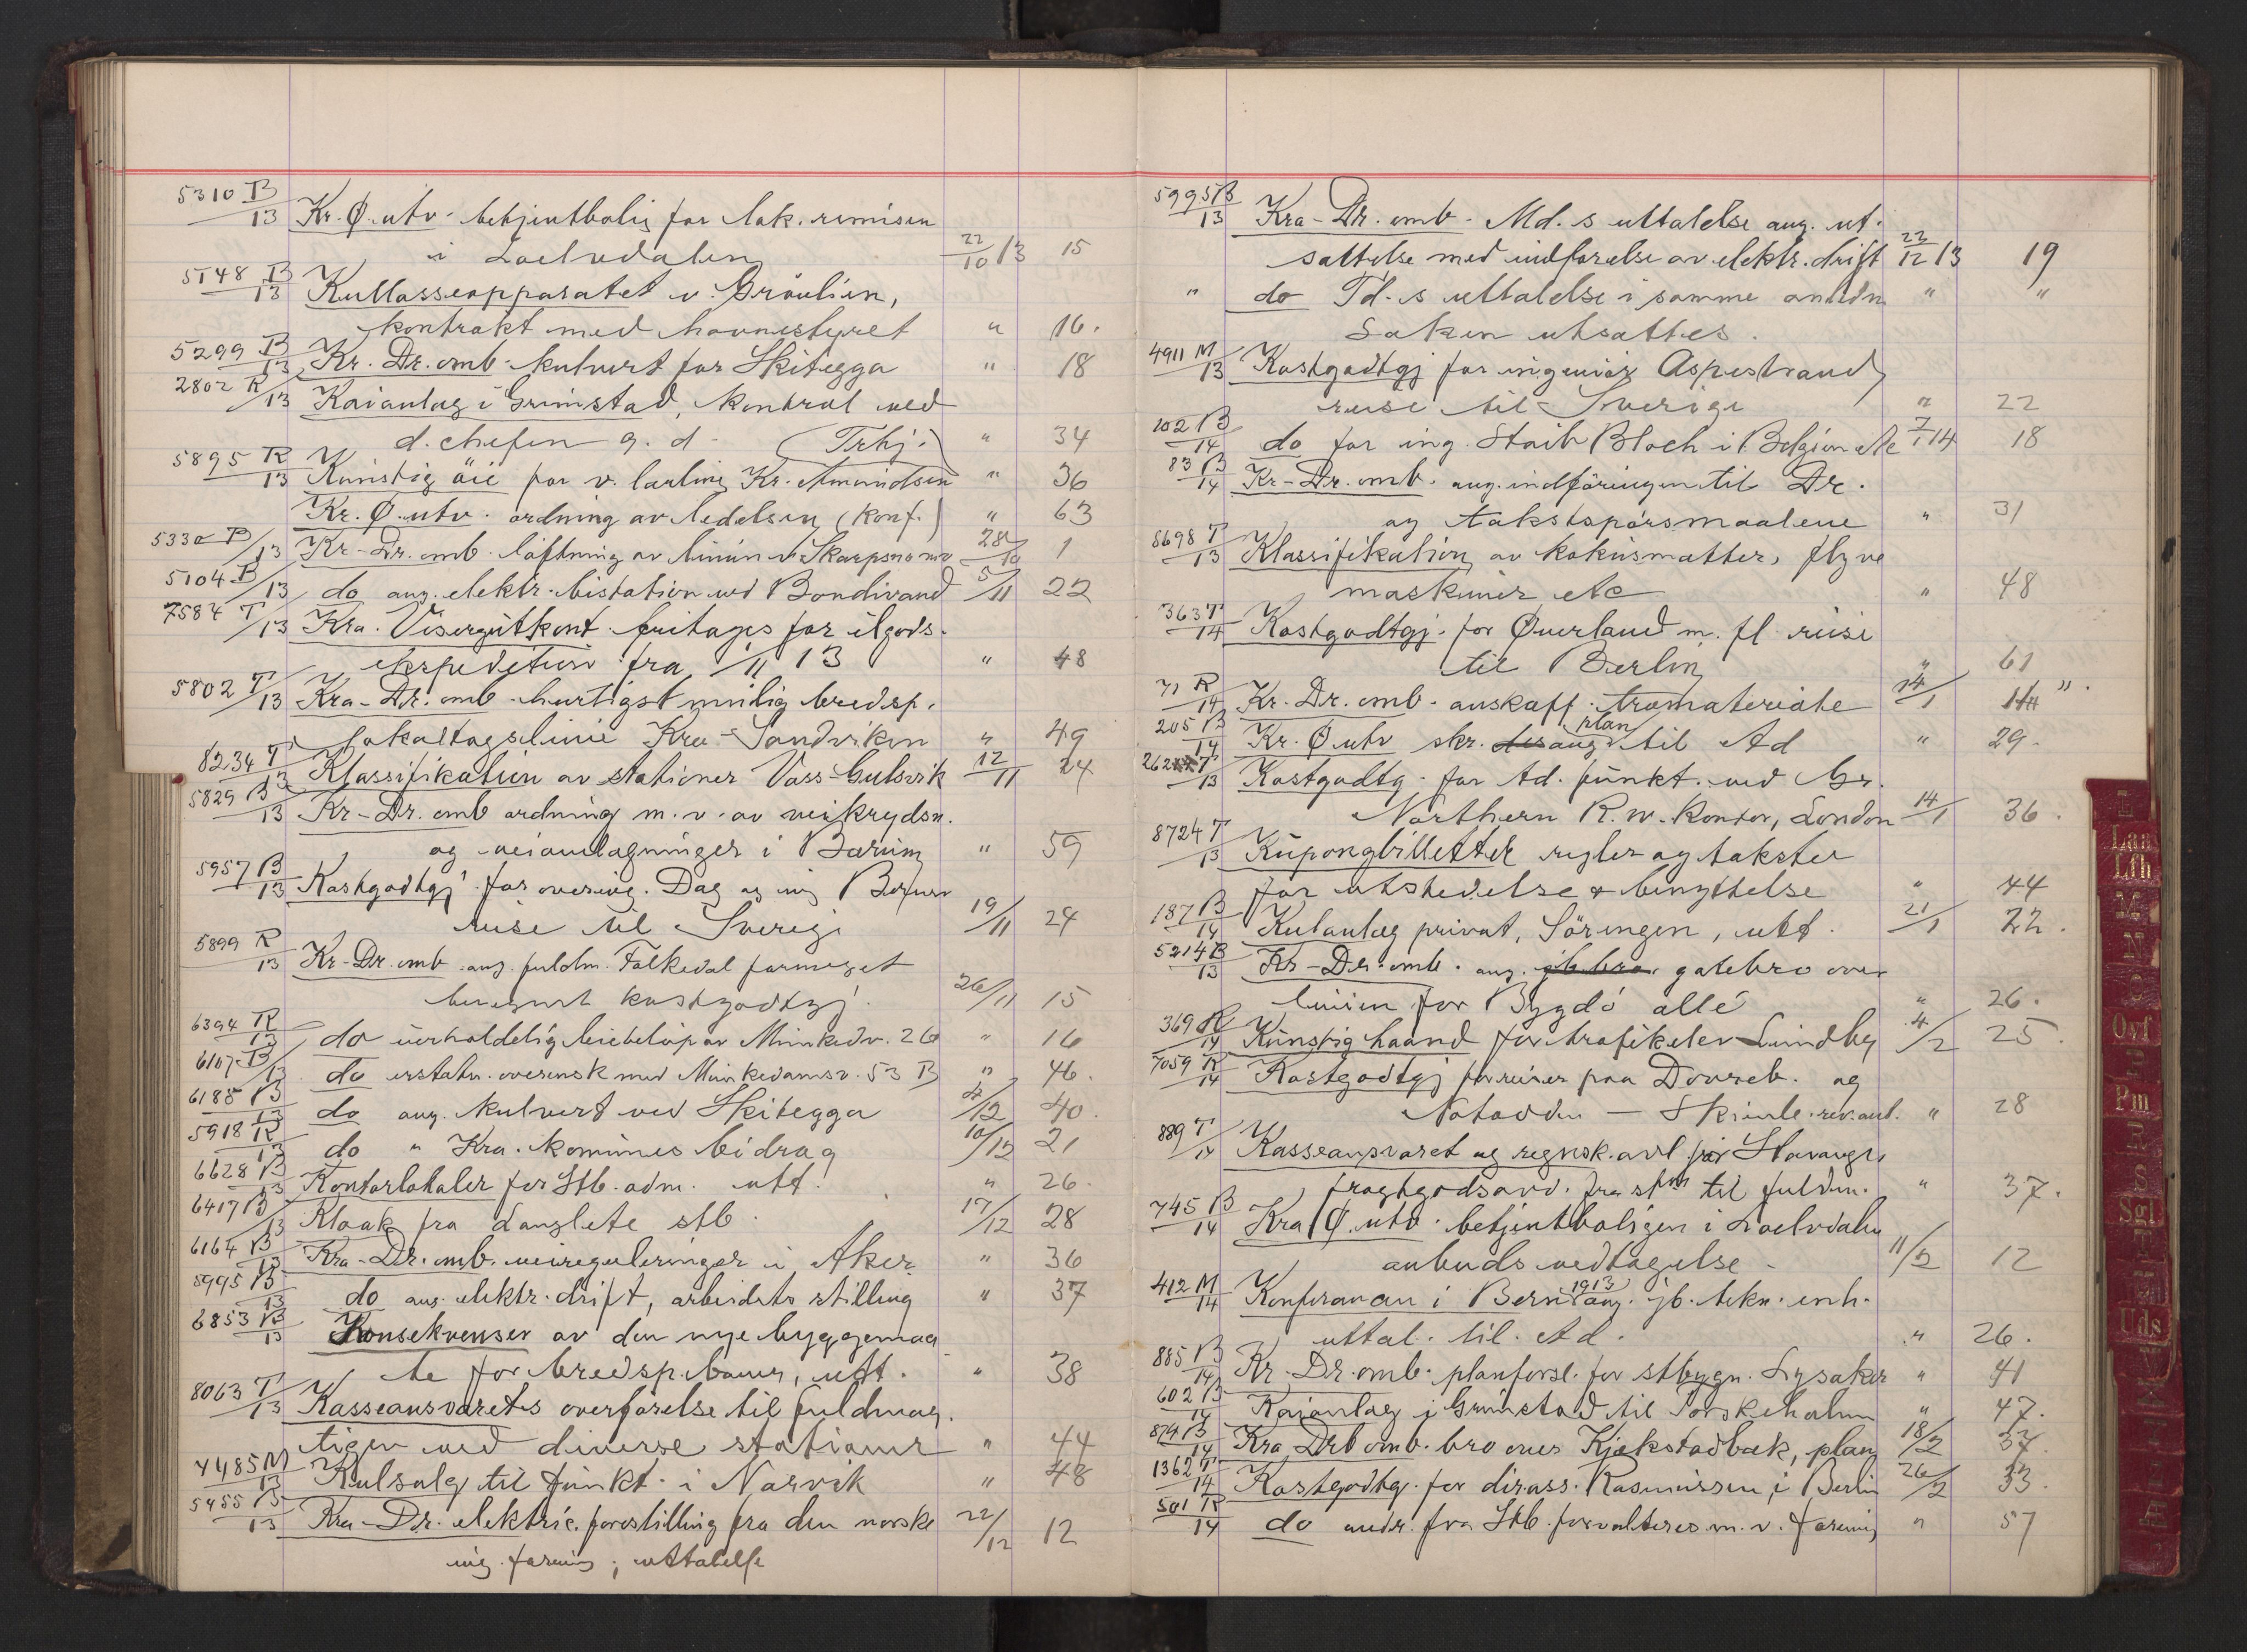 5310 B/13 Kr. Ø. utv. betjentbolig for lok. remisen
i Loelvdalen 22/10 13 15
5148 B/13 Kullosseapparatet v. Grønlien,
kontrakt med havnestyret " 16.
5299 B/13 Kr. Dr. omb. kulvert for Skitegga " 18
2802 R/13 Kaianlæg i Grimstad, kontrol ved
d. chefen g. d. (Trhj.) " 34
5895 R/13 Kunstig öie for v. lærling Kr. Amundsen " 36
Kr. Ø. utv. ordning av ledelsen (Konf.) " 63
5330 B/13 Kr-Dr. omb. löftning av linien v. Skarpsno 28/10 1
5104 B/13 do ang. elektr. bistation ved Bondivand 5/11 22
7584 T/13 Kra. Visergutkont. fritages for ilgods-
ekspedition fra 1/11 13 " 48
5802 T/13 Kra-Dr. omb. hurtigst mulig bredsp.
lokaltogslinie Kra-Sandviken " 49
8234 T/13 Klassifikation av stationer Voss-Gulsvik 12/11 24
5829 B/13 Kr-Dr. omb ordning m. v. av veikrydsn.
og veiomlægninger i Bærum " 59
5957 B/13 Kostgodtgj. for overing. Dag og ing
reise til Sverige 19/11 24
5899 R/13 Kr-Dr. omb. ang. fuldm. Falkedal formeget
beregnet kostgodtgj. 26/11 15
6394 R/13 do uerholdelig leiebelöp av Munkedv. 26 " 16
6107 B/13 do erstatn. overensk med Munkedamsv. 53 B " 46.
6185 B/13 do ang. kulvert ved Skitegga 4/12 40.
5918 R/13 do " Kra. komunes bidrag 10/12 21
6628 B/13 Kontorlokaler for Stb. adm. utt. " 26.
6417 B/13 Kloak fra Langlete stb. 17/12 28
6164 B/13 Kra-Dr. omb. veireguleringer i Aker " 36
5995 B/13 do ang. elektr. drift, arbeidets stilling " 37
6853 B/13 Konsekvenser av den nye byggemaa
te for bredsp. baner, utt. " 38
8063 T/13 Kasseansvarets overförelse til fuldmæg.
tigen ved diverse stationer " 44
4485 M/13 Kulsalg til funkt. i Narvik " 48
5455 B/13 Kra-Dr. elektric. forestilling fra den norske 22/12 12
ing. forening; uttalelse
5995 B/13 Kra-Dr. omb. Md.s uttalelse ang. ut-
sættelse med indförelse av elektr. drift 22/12 13 19
" do Td.s uttalelse i samme anledn " "
Saken utsættes.
4911 M/13 Kostgodtgj for ingeniör Aspestrand
reise til Sverige " 22
102 B/14 do for ing. Staib Bloch i Belgien etc 7/1 14 18
83 B/14 Kr-Dr. omb. ang. indföringen til Dr.
og takstspörsmaalene " 31
8698 T/13 Klassifikation av kokusmatter, flyve
maskiner etc " 48
363 T/14 Kostgodtgj. for Øverland m. fl. reise
til Berlin " 61
71 R/14 Kr. Dr. omb. anskaff. træmateriale 14/1 14 ".
205 B/14 Kr. Ø utv skr. ang plan til Ad " 29.
262 T/13 Kostgodtg. for Ad. funkt. ved Gr.
Northern R. w. kontor, London 14/1 36.
8724 T/13 Kupongbilletter regler og takster
for utstedelse & benyttelse " 44
187 B/14 Kulanlæg privat, Söringen, utt. 21/1 22.
5214 B/13 Kr-Dr. omb. ang. gatebro over
linien for Bygdö allé " 26.
369 R/14 Kunstig haand for trafikelev Lundby 4/2 25.
7059 R/14 Kostgodtgj for reiser paa Dovreb. og
Notodden — Skinle. rev. ant. " 28
889 T/14 Kasseansvaret og regnsk. avl for Stavanger
fragtgodsavd. fra stm til fuldm. " 37.
745 B/14 Kra Ø. utv. betjentboligen i Loelvdalen
anbuds vedtagelse. 11/2 12
412 M/14 Konferansen i Bern 1913 ang. jb. tekn. enh.
uttal. til Ad. " 26.
885 B/14 Kr-Dr. omb. planforsl. for stbygn. Lysaker " 41
602 B/14 Kaianlæg i Grimstad til Torskeholmen " 47.
874 B/14 Kra Dr omb. bro over Kjækstadbæk, plan 18/2 37.
1362 T/14 Kostgodtg. for dirass. Rasmussen, i Berlin 26/2 33.
501 R/14 do andr. fra Stb. forvalteres m. v. forening " 57